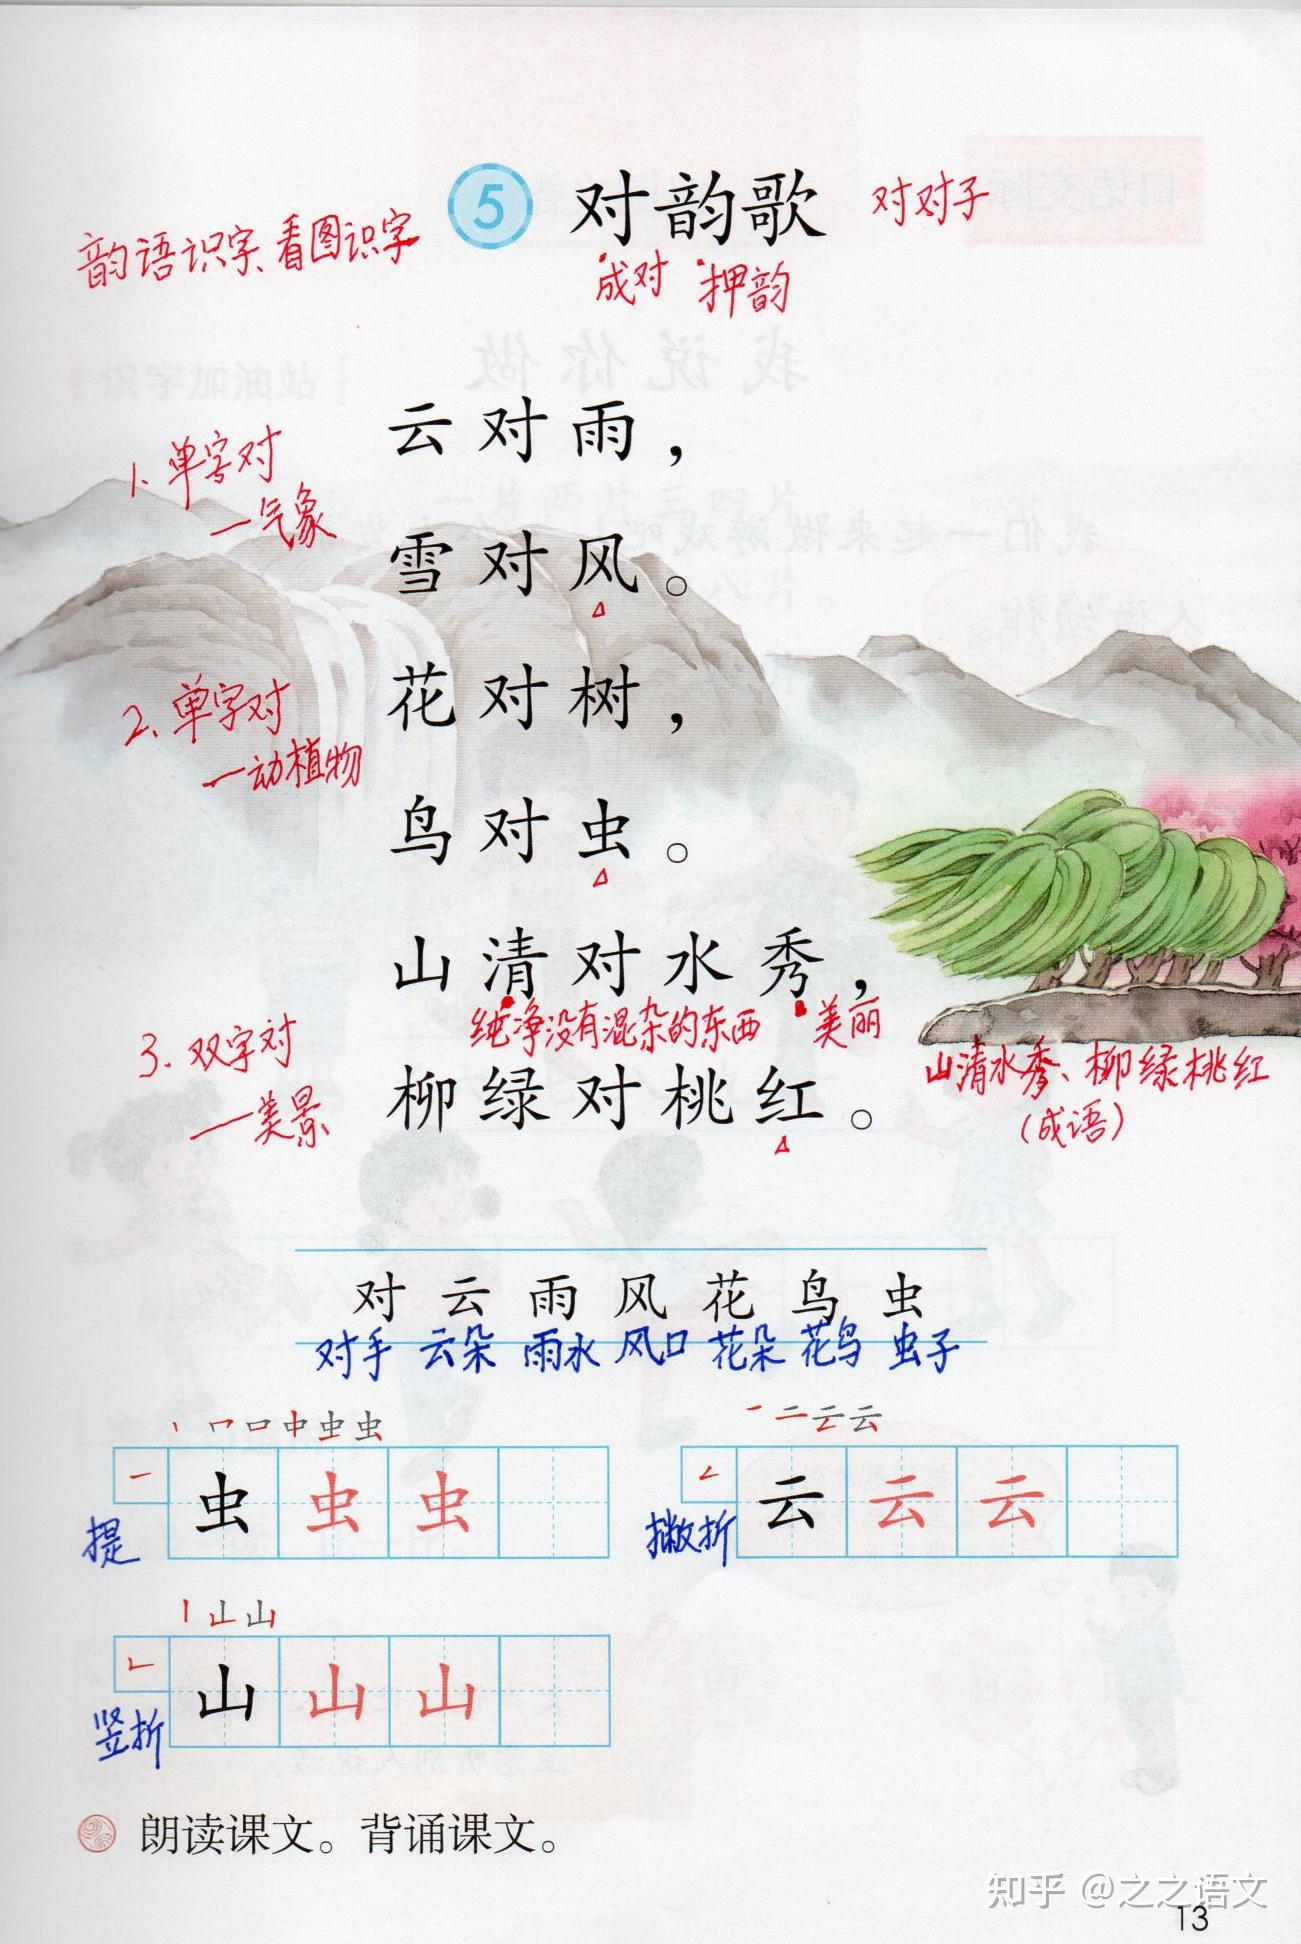 5 对韵歌 对对子
韵语识字、看图识字
成对 押韵
云对雨，
1、单字对
—气象
雪对风。
花对树，
2、单字对
—动植物
鸟对虫。
山清对水秀，
纯净没有混杂的东西 美丽
3. 双字对
—美景
柳绿对桃红。
山清水秀、柳绿桃红
（成语）
对 云 雨 风 花 鸟 虫
对手 云朵 雨水 风口 花朵 花鸟 虫子
虫 虫 虫
提
云 云 云
撇折
山 山 山
竖折
朗读课文。背诵课文。
知乎 @之之语文
13